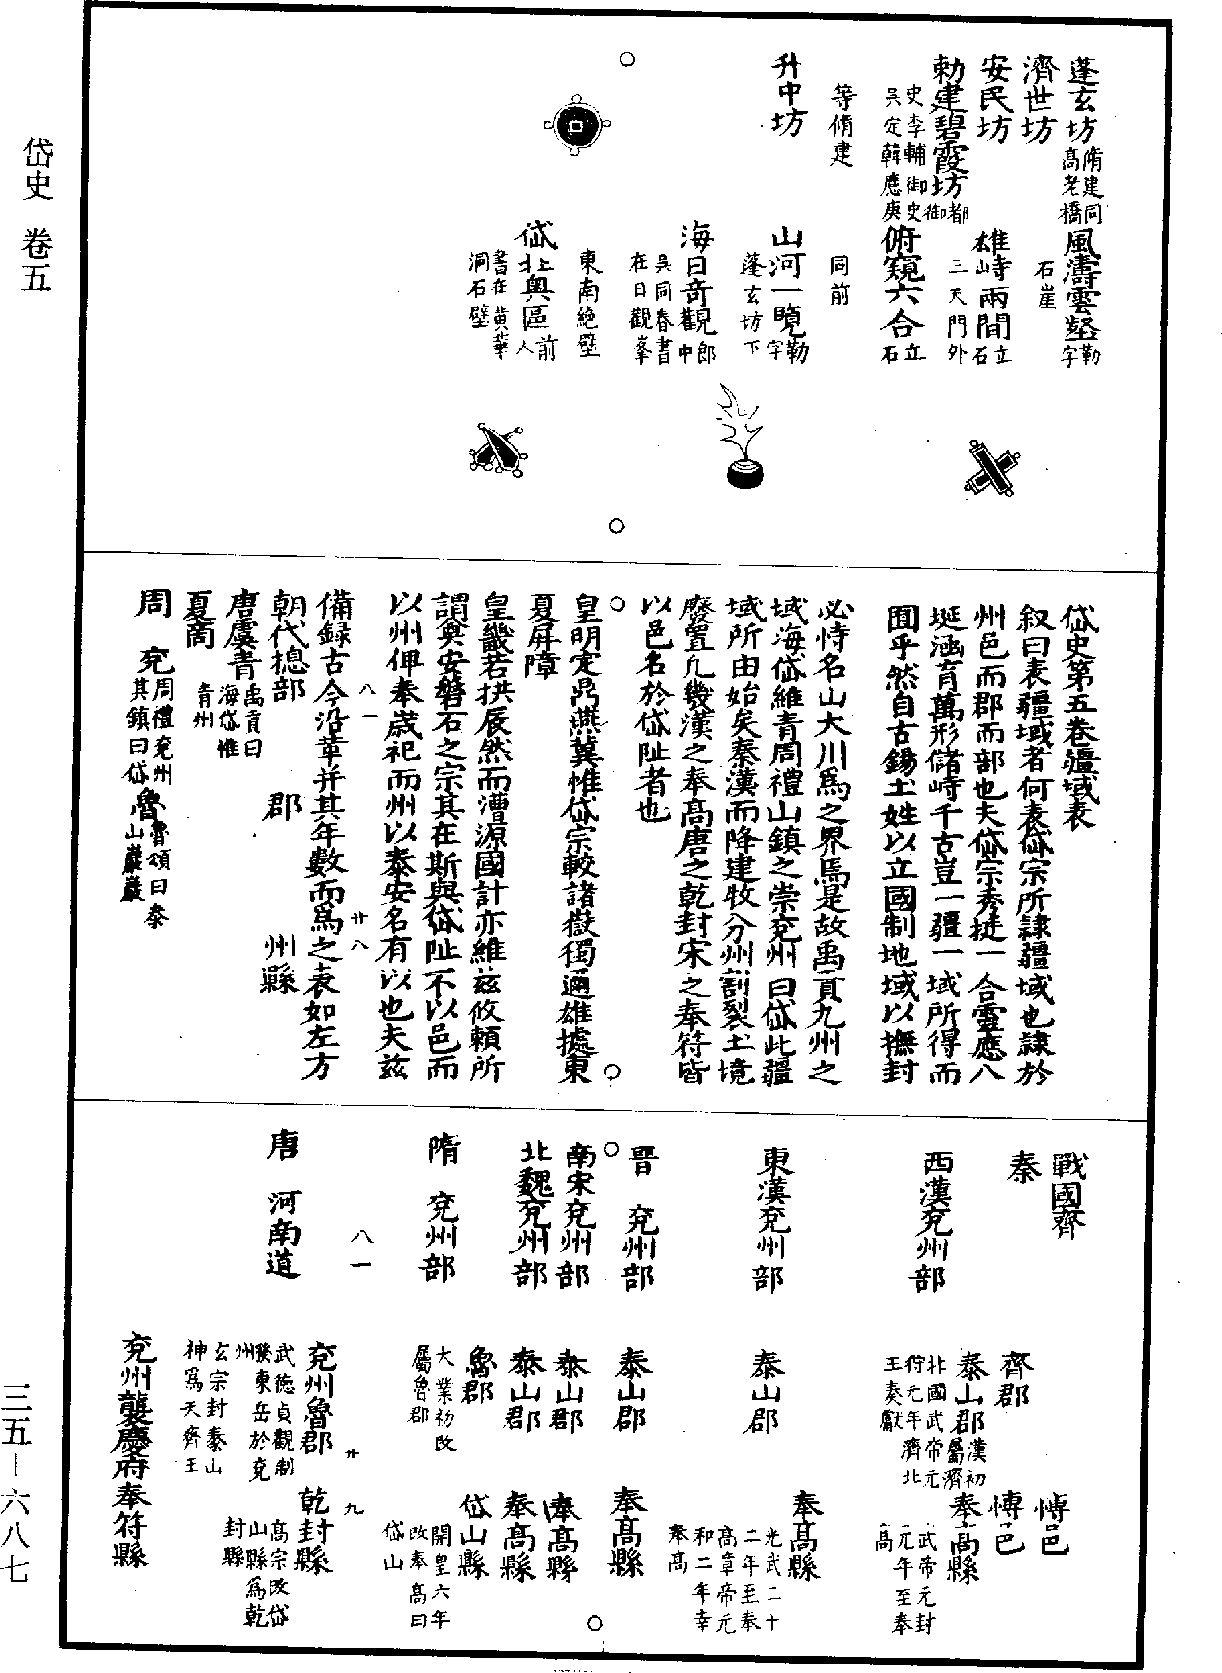 岱史　卷五
三五－六八七
蓬玄坊脩建同高老橋　風濤雲壑勒字石崖
濟世坊
安民坊　雄峙兩間立石三天門外
勅建碧霞坊都御史李輔御史吳定韓應庚　俯窺六合立石
等脩建　同前
升中坊　山河一覽勒字蓬玄坊下
海日奇觀郎中吳同春書在日觀峯
東南絶壁
岱北奥區前人書在黃華洞石壁
岱史第五卷疆域表
叙曰表疆域者何表岱宗所隷疆域也隷於
州邑而郡而部也夫岱宗秀挺一合靈應八
埏涵育萬形儲峙千古豈一疆一域所得而
囿乎然自古錫土姓以立國制地域以撫封
必恃名山大川爲之界焉是故禹貢九州之
域海岱維青周禮山鎮之崇兖州曰岱此疆
域所由始矣秦漢而降建牧分州割裂土境
廢置凡幾漢之奉高唐之乾封宋之奉符皆
以邑名於岱阯者也
皇明定鼎燕冀惟岱宗較諸嶽獨邇雄據東
夏屏障
皇畿若拱辰然而漕源國計亦維兹攸賴所
謂奠安磐石之宗其在斯與岱阯不以邑而
以州俾奉歲祀而州以泰安名有以也夫兹
八一　廿八
備録古今沿革并其年數而爲之表如左方
朝代揔部　郡　州縣
唐虞青禹貢曰海岱惟青州
夏商
周　兖周禮兖州其鎮曰岱　魯魯頌曰泰山巖巖
戰國齊　博邑
秦　齊郡　博邑
西漢兖州部　泰山郡漢初屬濟北國武帝元狩元年濟北王奏獻　奉高縣武帝元封元年至奉高
東漢兖州部　泰山郡　奉高縣光武二十二年至奉高章帝元和二年幸奉高
晋　兖州部　泰山郡　奉高縣
南宋兖州部　泰山郡　奉高縣
北魏兖州部　泰山郡　奉高縣
隋　兖州部　魯郡大業初改屬魯郡　岱山縣開皇六年改奉高曰岱山
八一　廿九
唐　河南道　兖州魯郡武德貞觀制發東岳於兖州玄宗封泰山神爲天齊王　乾封縣高宗改岱山縣爲乾封縣
兖州襲慶府奉符縣